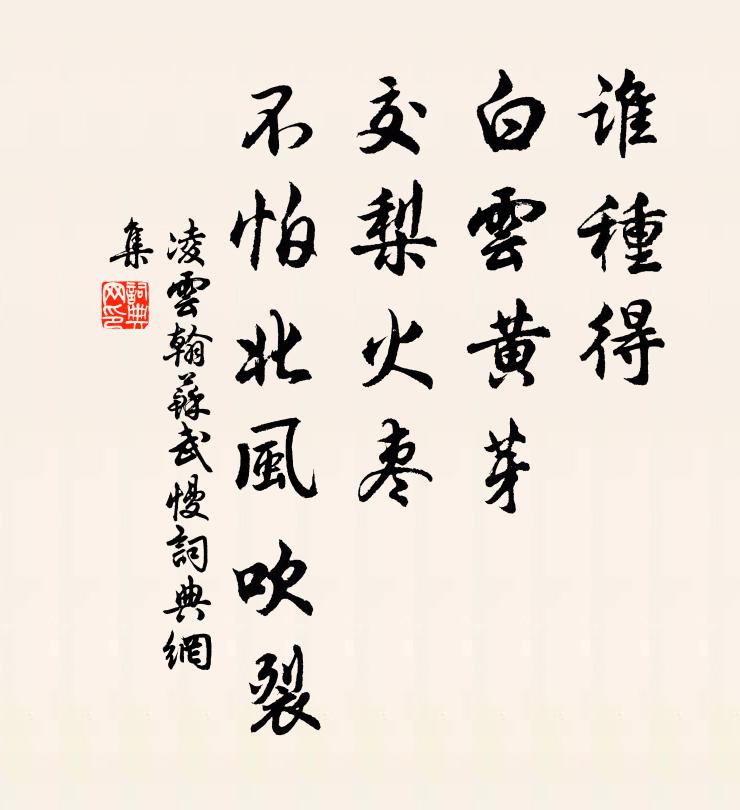 誰種得
白雲黄芽
交梨火枣
不怕北風吹裂
凌雲翰蘇武慢詞典網
集
詞典
网印